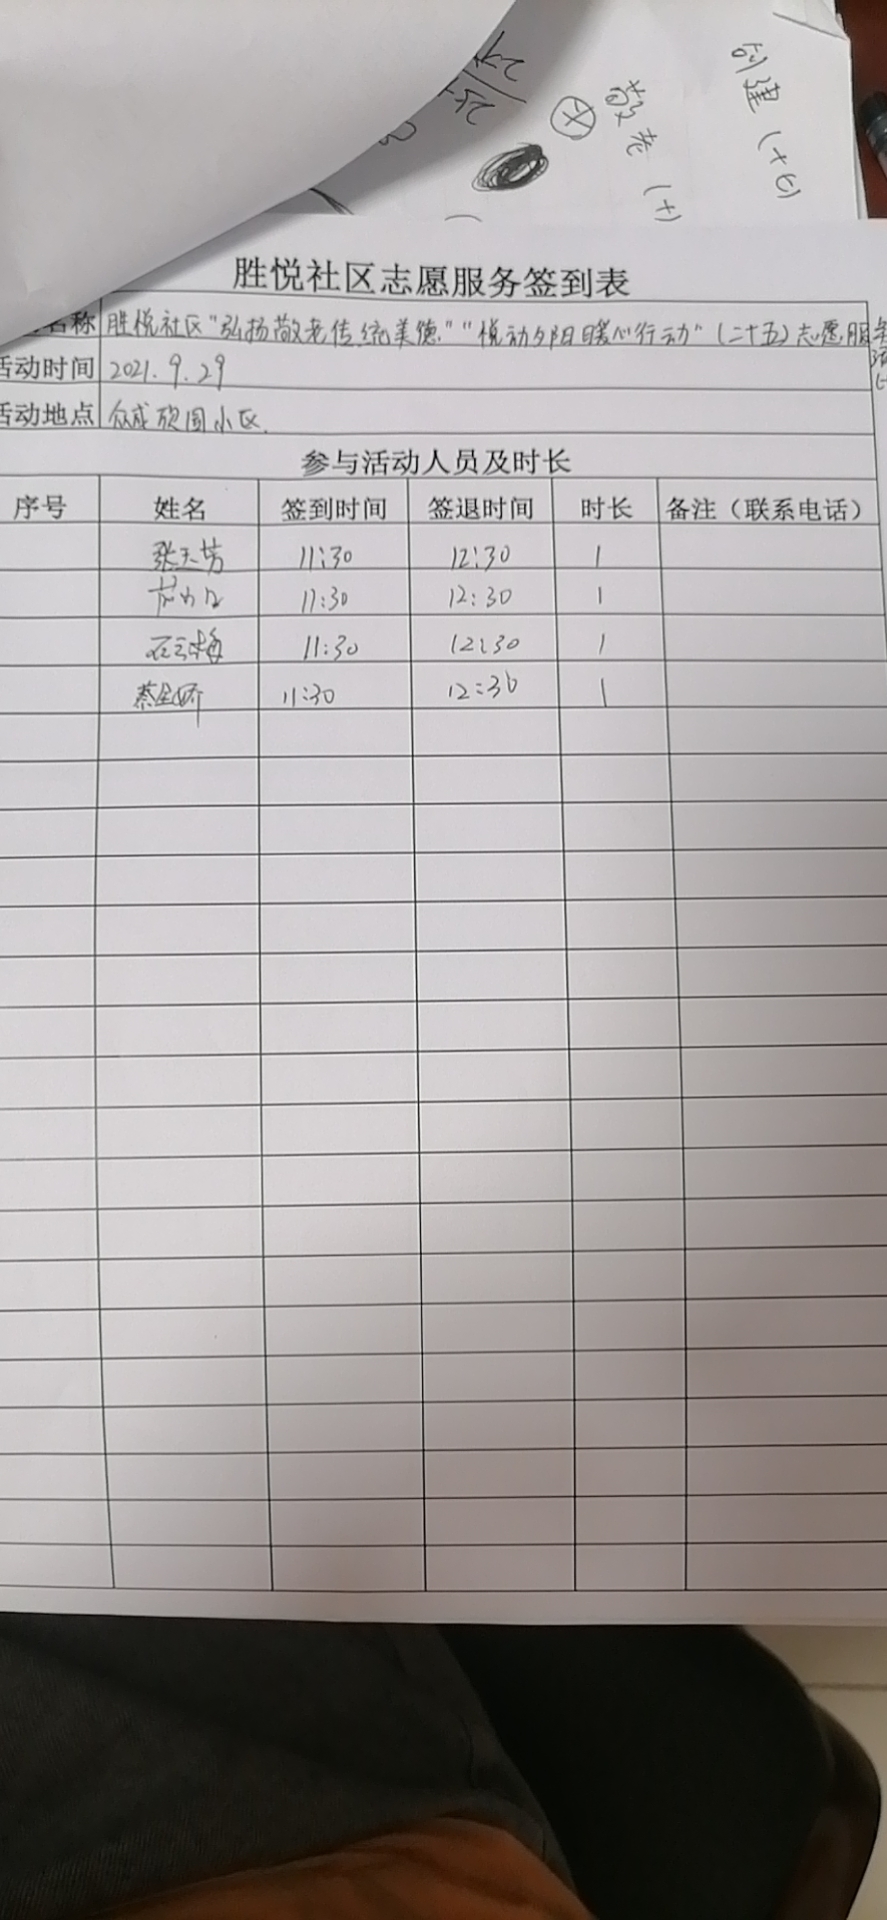 创建(十七)
敬老(十)
胜悦社区志愿服务签到表
名称 胜悦社区"弘扬敬老传统美德""悦动夕阳暖心行动"(二十五)志愿服务活动
活动时间 2021.9.29
活动地点 众成 小区.
参与活动人员及时长
序号 姓名 签到时间 签退时间 时长 备注（联系电话）
张玉芳 11:30 12:30 1
11:30 12:30 1
石云梅 11:30 12:30 1
蔡金娇 11:30 12:30 1